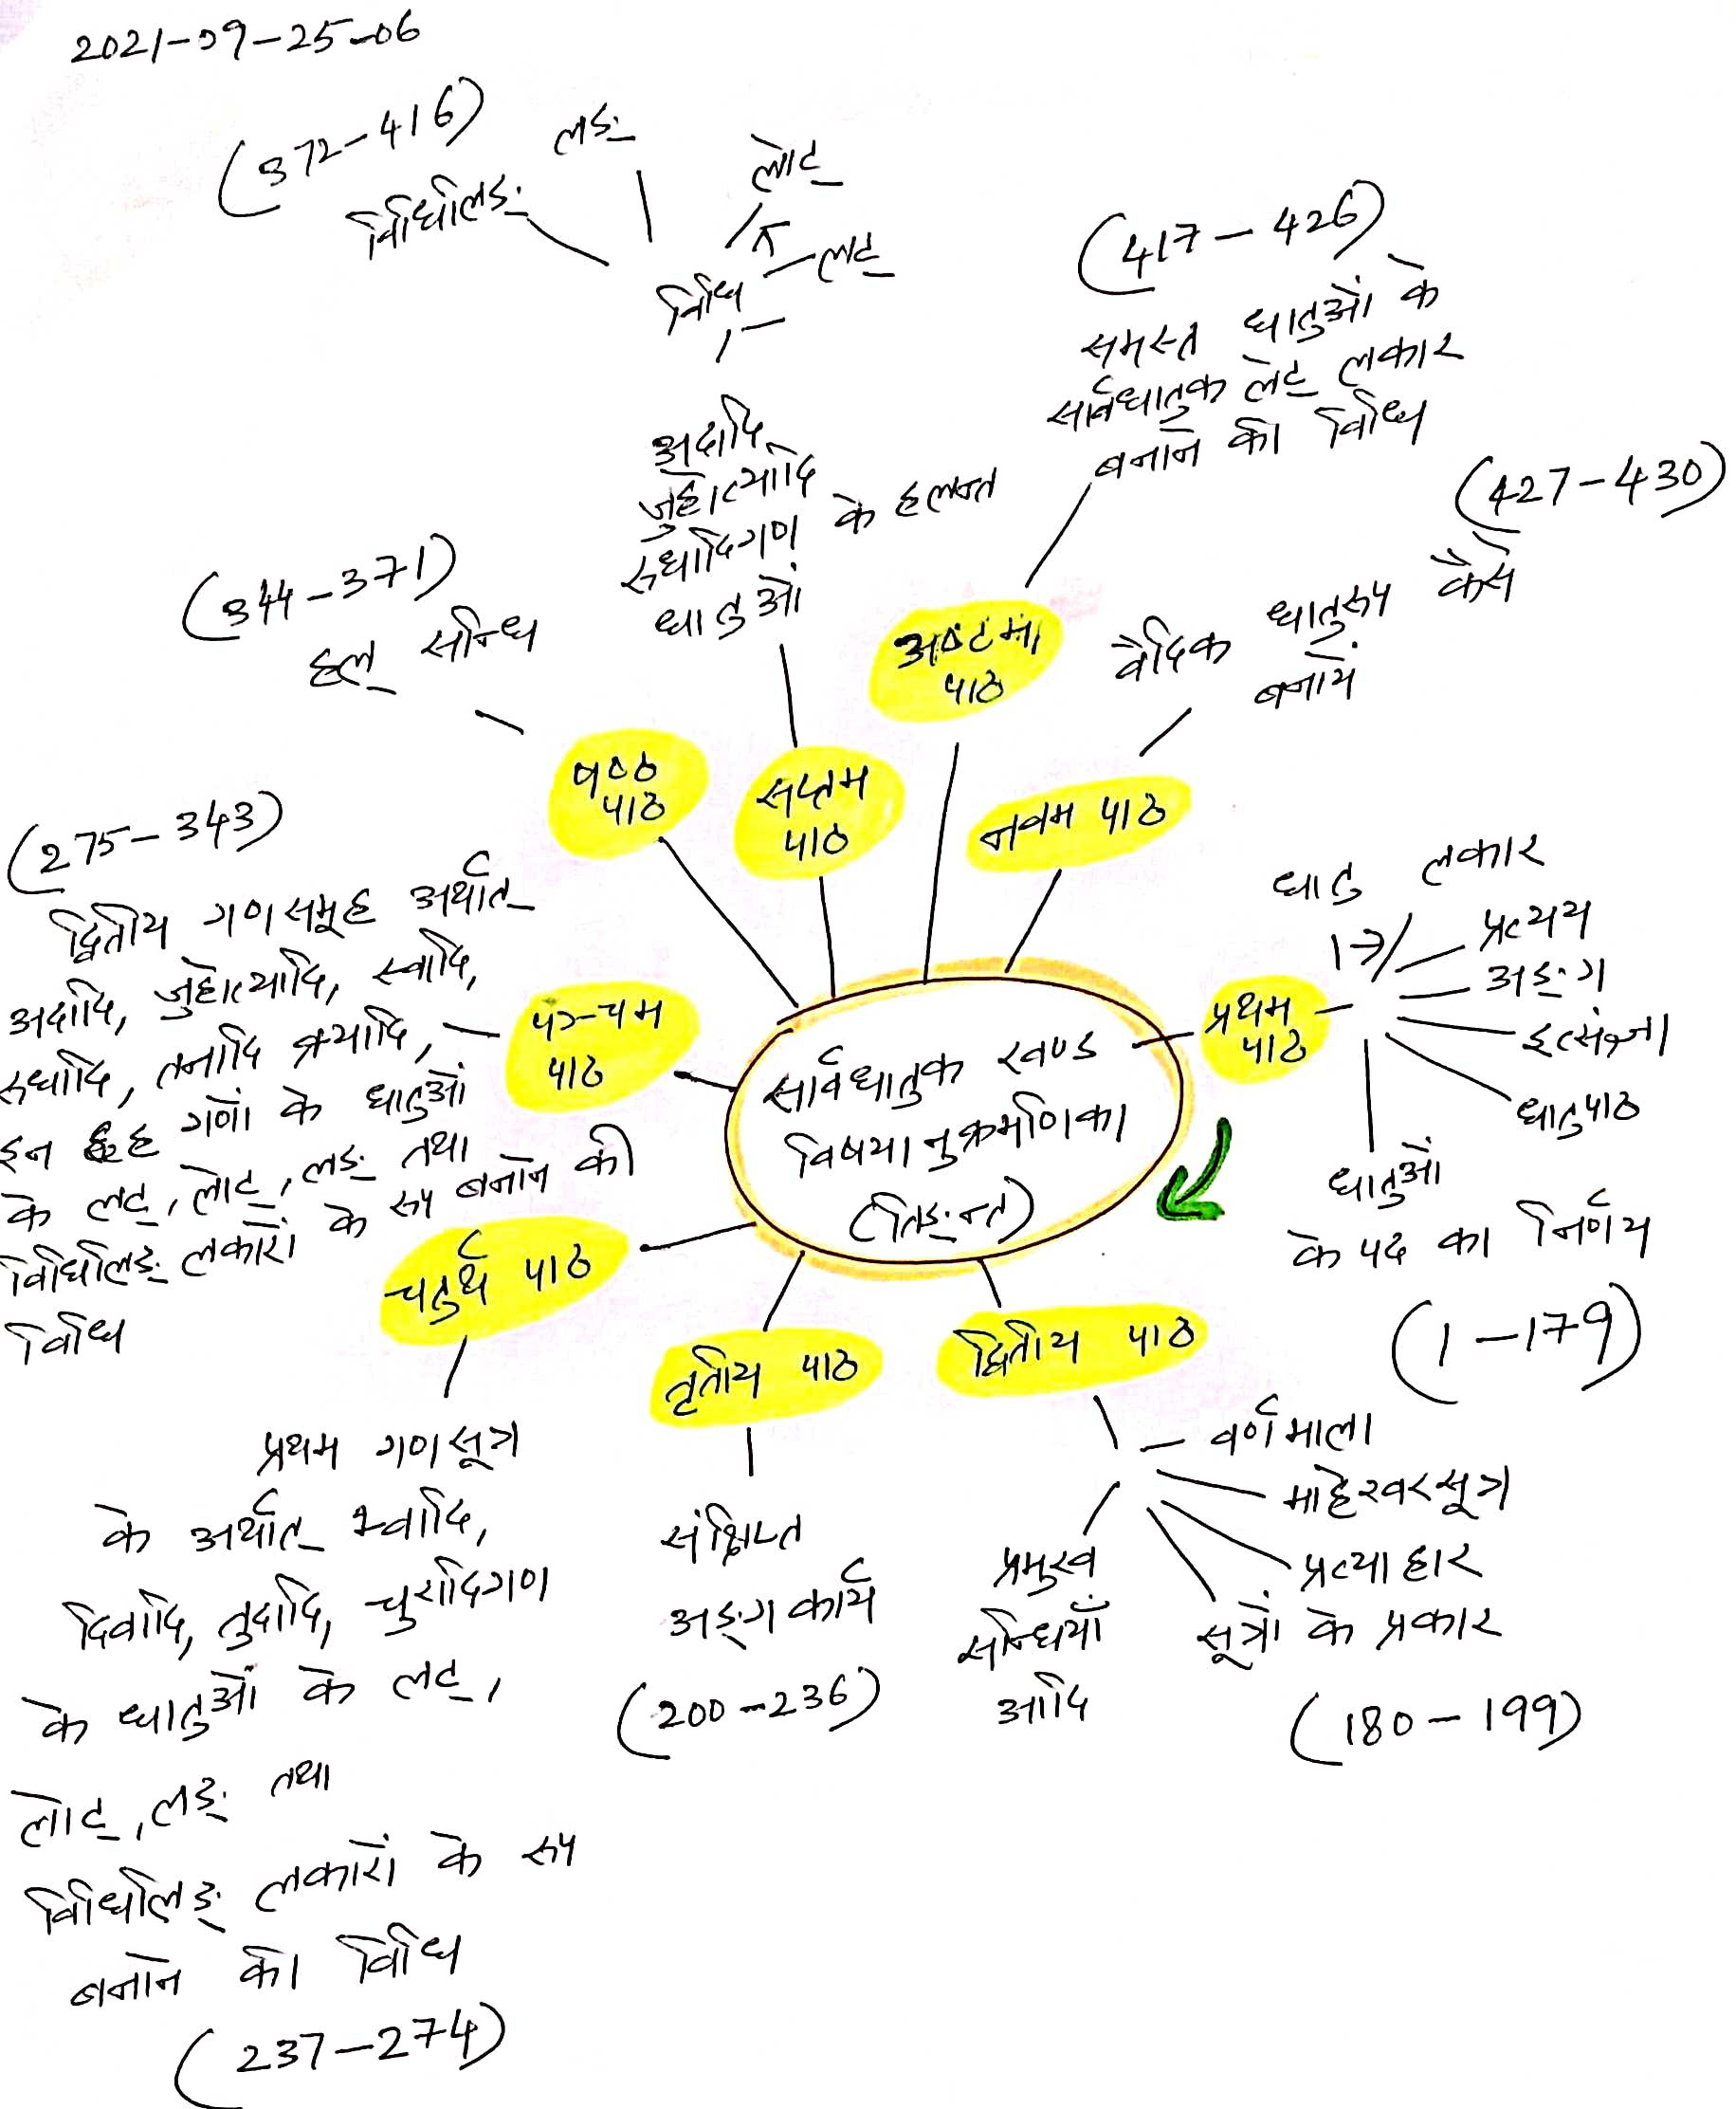 2021-09-25-06
(372-416)
विधिलिङ्
लङ्
लोट्
लट्
विधि
अदादि
जुहोत्यादि
रुधादिगण के हलन्त
धातुओं
(417-426)
समस्त धातुओं के
सार्वधातुक लेट् लकार
बनाने की विधि
(427-430)
वैदिक धातुरूप कैसे
बनायें
(344-371)
हल् सन्धि
अष्टमा
पाठ
षष्ठ
पाठ
सप्तम
पाठ
नवम पाठ
(275-343)
द्वितीय गणसमूह अर्थात्
अदादि, जुहोत्यादि, स्वादि,
रुधादि, तनादि क्र्यादि,
इन छह गणों के धातुओं
के लट्, लोट्, लङ् तथा
विधिलिङ् लकारों के रूप बनाने की
विधि
पञ्चम
पाठ
सार्वधातुक खण्ड
विषयानुक्रमणिका
(तिङन्त)
प्रथम
पाठ
धातु
लकार
प्रत्यय
अङ्ग
इत्संज्ञा
धातुपाठ
धातुओं
के पद का निर्णय
(1-179)
चतुर्थ पाठ
तृतीय पाठ
द्वितीय पाठ
प्रथम गण सूत्र
के अर्थात् भ्वादि,
दिवादि, तुदादि, चुरादिगण
के धातुओं के लट्,
लोट्, लङ् तथा
विधिलिङ् लकारों के रूप
बनाने की विधि
(237-274)
संक्षिप्त
अङ्ग कार्य
(200-236)
वर्णमाला
माहेश्वरसूत्र
प्रत्याहार
सूत्रों के प्रकार
प्रमुख
सन्धियाँ
आदि
(180-199)